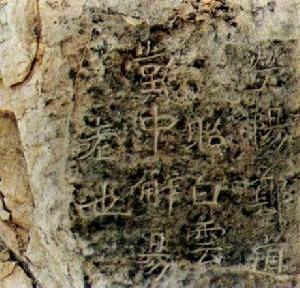 荥陽鄭道
昭白雲
堂中解易
老也